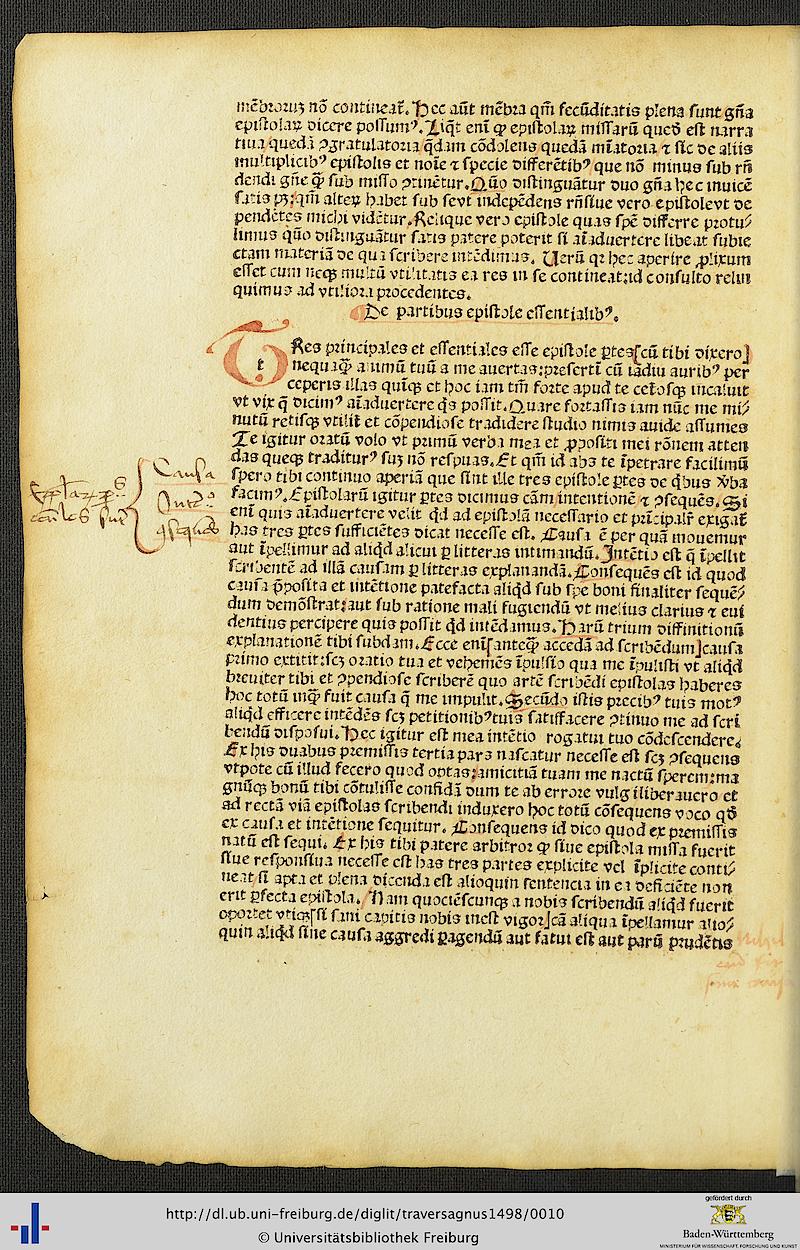 mēbroruz nō contineat̄. Hec aūt mēbra qm̄ fecūditatis plena sunt gn̄a
epistolaꝝ dicere possumꝰ. Liq̄t enī ꝙ epistolaꝝ missarū quedā est narra
tiua quedā ꝯgratulatoria q̄dam cōdolens quedā mīatoria ⁊ sic de aliis
multiplicibꝰ epistolis et noīe ⁊ specie differētibꝰ que nō minus sub rn̄
dendi gn̄e q̄ꝫ sub misso ꝯtinētur. Quō distinguātur duo gn̄a hec inuicē
satis pꝫ: qm̄ alteꝝ habet sub se vt indepēdens rn̄siue vero epistole vt de
pendētes michi vidētur. Relique vero epistole quas spē differre protu⸗
limus quō distinguātur satis patere poterit si aīaduertere libeat subie
ctam materiā de qua scribere intēdimus. Uerū qꝛ hec aperire ꝓlixum
esset cum neqꝫ multū vtilitatis ea res in se contineat: id consulto relin
quimus ad vtiliora procedentes.
De partibus epistole essentialibꝰ.
TRes principales et essentiales esse epistole ꝑtes[cū tibi dixero]
t
nequaq̄ꝫ animū tuū a me auertas: presertī cū iādiu auribꝰ per
ceperis illas quīqꝫ et hoc iam tm̄ forte apud te cetosqꝫ incaluit
vt vix q̄ dicimꝰ aīaduertere q̄s possit. Quare fortassis iam nūc me mi⸗
nutū retisqꝫ vtilit̄ et cōpendiose tradidere studio nimis auide assumes
Te igitur oratū volo vt primū verba mea et ꝓpositi mei rōnem atten
das queqꝫ traditurꝰ suꝫ nō respuas. Et qm̄ id abs te īpetrare facilimū
spero tibi continuo aperiā que sint ille tres epistole ꝑtes de q̄bus v̄ba
facimꝰ. Epistolarū igitur ꝑtes dicimus cām intentionē ⁊ ꝯsequēs. Si
enī quis aīaduertere velit qd̄ ad epistolā necessario et prīcipalr̄ exigat̄
has tres ꝑtes sufficiētes dicat necesse est. Causa ē per quā mouemur
aut īpellimur ad aliqd̄ alicui ꝑ litteras intimandū. Intētio est q̄ īpellit
scribentē ad illā causam ꝑ litteras explanandā. Consequēs est id quod
causa p̄posita et intētione patefacta aliqd̄ sub spe boni finaliter sequē⸗
dum demōstrat: aut sub ratione mali fugiendū vt melius clarius ⁊ eui
dentius percipere quis possit qd̄ intēdamus. Harū trium diffinitionū
explanationē tibi subdam. Ecce enī[anteq̄ꝫ accedā ad scribēdum]causa
primo extitit: scꝫ oratio tua et vehemēs īpulsio qua me īpulisti vt aliqd̄
breuiter tibi et ꝯpendiose scriberē quo artē scribēdi epistolas haberes
hoc totū inq̄ꝫ fuit causa q̄ me impulit. Secūdo istis precibꝰ tuis motꝰ
aliqd̄ efficere intēdēs scꝫ petitionibꝰ tuis satisfacere ꝯtinuo me ad scri
bendū disposui. Hec igitur est mea intētio rogatui tuo cōdescendere.
Ex his duabus premissis tertia pars nascatur necesse est scꝫ ꝯsequens
vtpote cū illud fecero quod optas: amicitiā tuam me nactū sperem: ma
gnūqꝫ bonū tibi cōtulisse confidā dum te ab errore vulg iliberauero et
ad rectā viā epistolas scribendi induxero hoc totū cōsequens voco qd̄
ex causa et intētione sequitur. Consequens id dico quod ex premissis
natū est sequi. Ex his tibi patere arbitror ꝙ siue epistola missa fuerit
siue responsiua necesse est has tres partes explicite vel īplicite conti⸗
neat si apta et plena dicenda est alioquin sententia in ea deficiēte non
erit ꝑfecta epistola. Nam quociēscunqꝫ a nobis scribendū aliqd̄ fuerit
oportet vtiqꝫ[si sani capitis nobis inest vigor]cā aliqua īpellamur alio⸗
quin aliqd̄ sine causa aggredi ꝑagendū aut fatui est aut parū prudētis
Causa
Intēꝰ
ꝯsequēs
http://dl.ub.uni-freiburg.de/diglit/traversagnus1498/0010
© Universitätsbibliothek Freiburg
gefördert durch
Baden-Württemberg
MINISTERIUM FÜR WISSENSCHAFT, FORSCHUNG UND KUNST